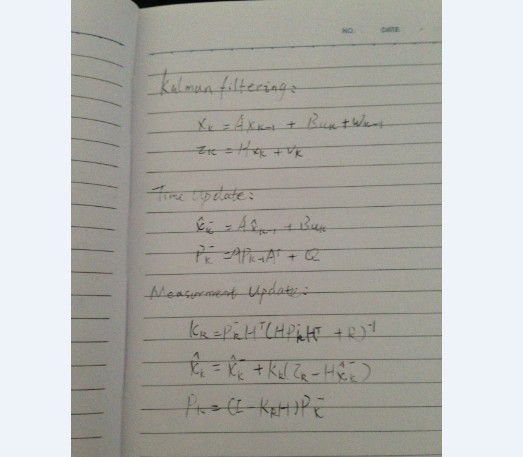 NO. DATE
Kalman filtering:
x_k = A x_{k-1} + B u_k + w_{k-1}
z_k = H x_k + v_k
Time Update:
x̂_k^- = A x̂_{k-1} + B u_k
P_k^- = A P_{k-1} A^T + Q
Measurment Update:
K_k = P_k^- H^T (H P_k^- H^T + R)^{-1}
x̂_k = x̂_k^- + K_k (z_k - H x̂_k^-)
P_k = (I - K_k H) P_k^-